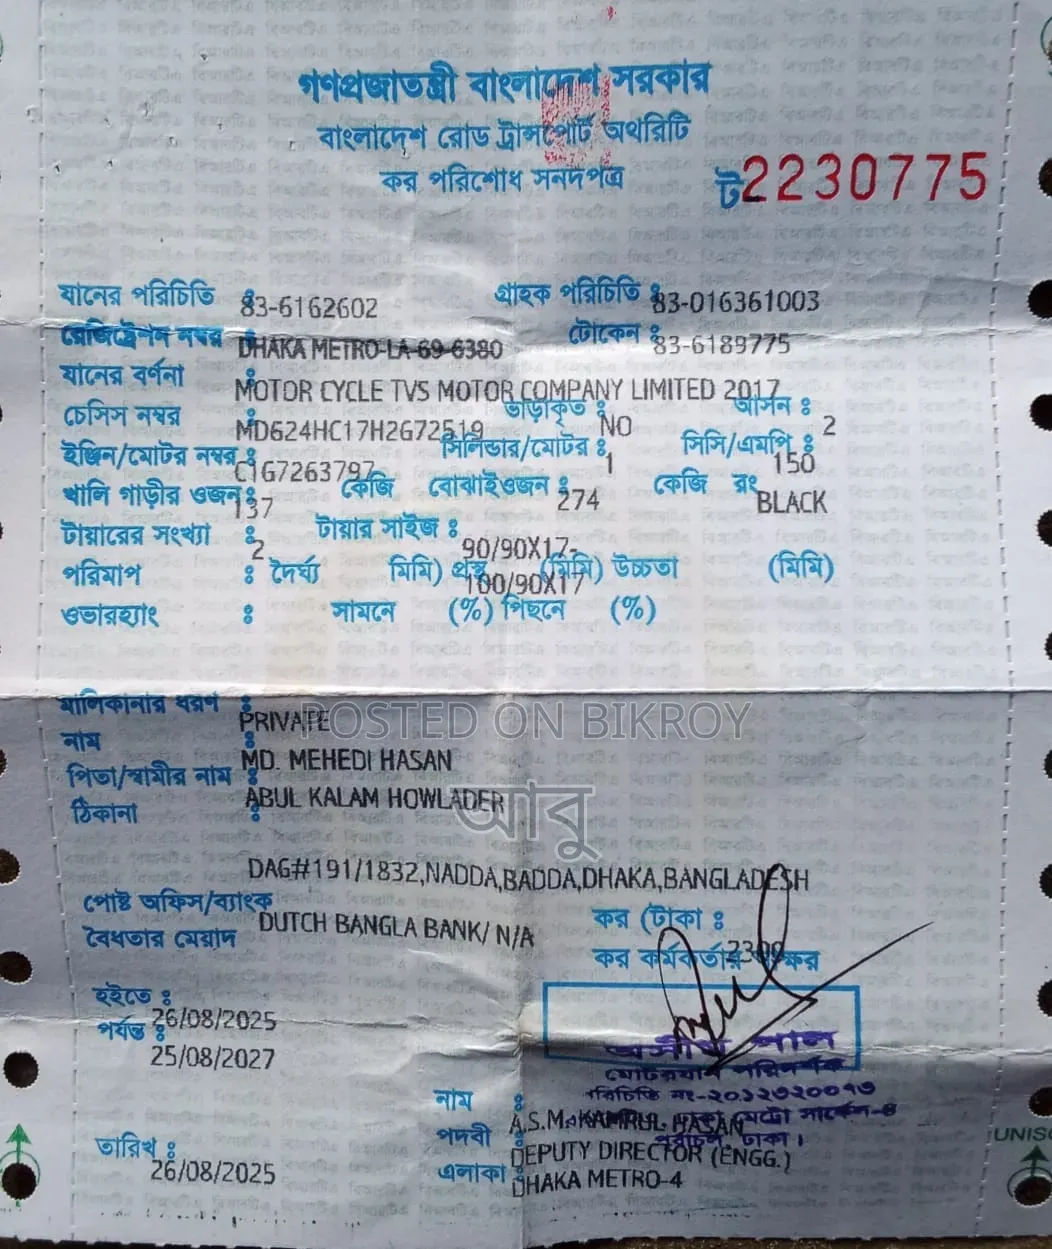 গণপ্রজাতন্ত্রী বাংলাদেশ সরকার
বাংলাদেশ রোড ট্রান্সপোর্ট অথরিটি
কর পরিশোধ সনদপত্র
ট2230775
যানের পরিচিতি : 83-6162602 গ্রাহক পরিচিতি : 83-016361003
রেজিষ্ট্রেশন নম্বর : DHAKA METRO-LA-69-6380 টোকেন : 83-6189775
যানের বর্ণনা : MOTOR CYCLE TVS MOTOR COMPANY LIMITED 2017
চেসিস নম্বর : MD624HC17H2G72519 ভাড়াকৃত : NO আসন : 2
ইঞ্জিন/মোটর নম্বর : C1G7263797 সিলিন্ডার/মোটর : 1 সিসি/এমপি : 150
খালি গাড়ীর ওজন : 137 কেজি বোঝাইওজন : 274 কেজি রং BLACK
টায়ারের সংখ্যা : 2 টায়ার সাইজ : 90/90X17-
100/90X17
পরিমাপ : দৈর্ঘ্য মিমি) প্রস্থ (মিমি) উচ্চতা (মিমি)
ওভারহ্যাং : সামনে (%) পিছনে (%)
মালিকানার ধরণ : PRIVATE
POSTED ON BIKROY
নাম : MD. MEHEDI HASAN
পিতা/স্বামীর নাম : ABUL KALAM HOWLADER
আবু
ঠিকানা :
DAG#191/1832,NADDA,BADDA,DHAKA,BANGLADESH
পোষ্ট অফিস/ব্যাংক DUTCH BANGLA BANK/ N/A
কর (টাকা : 2300
বৈধতার মেয়াদ
কর কর্মকর্তার স্বাক্ষর
হইতে : 26/08/2025
পর্যন্ত : 25/08/2027
অসীম পাল
মোটরযান পরিদর্শক
পরিচিতি নং-২০১২৭২০০১৭
ঢাকা মেট্রো সার্কেল-৪
পূর্বাচল, ঢাকা।
নাম : A.S.M. KAMRUL HASAN
পদবী : DEPUTY DIRECTOR (ENGG.)
এলাকা : DHAKA METRO-4
তারিখ : 26/08/2025